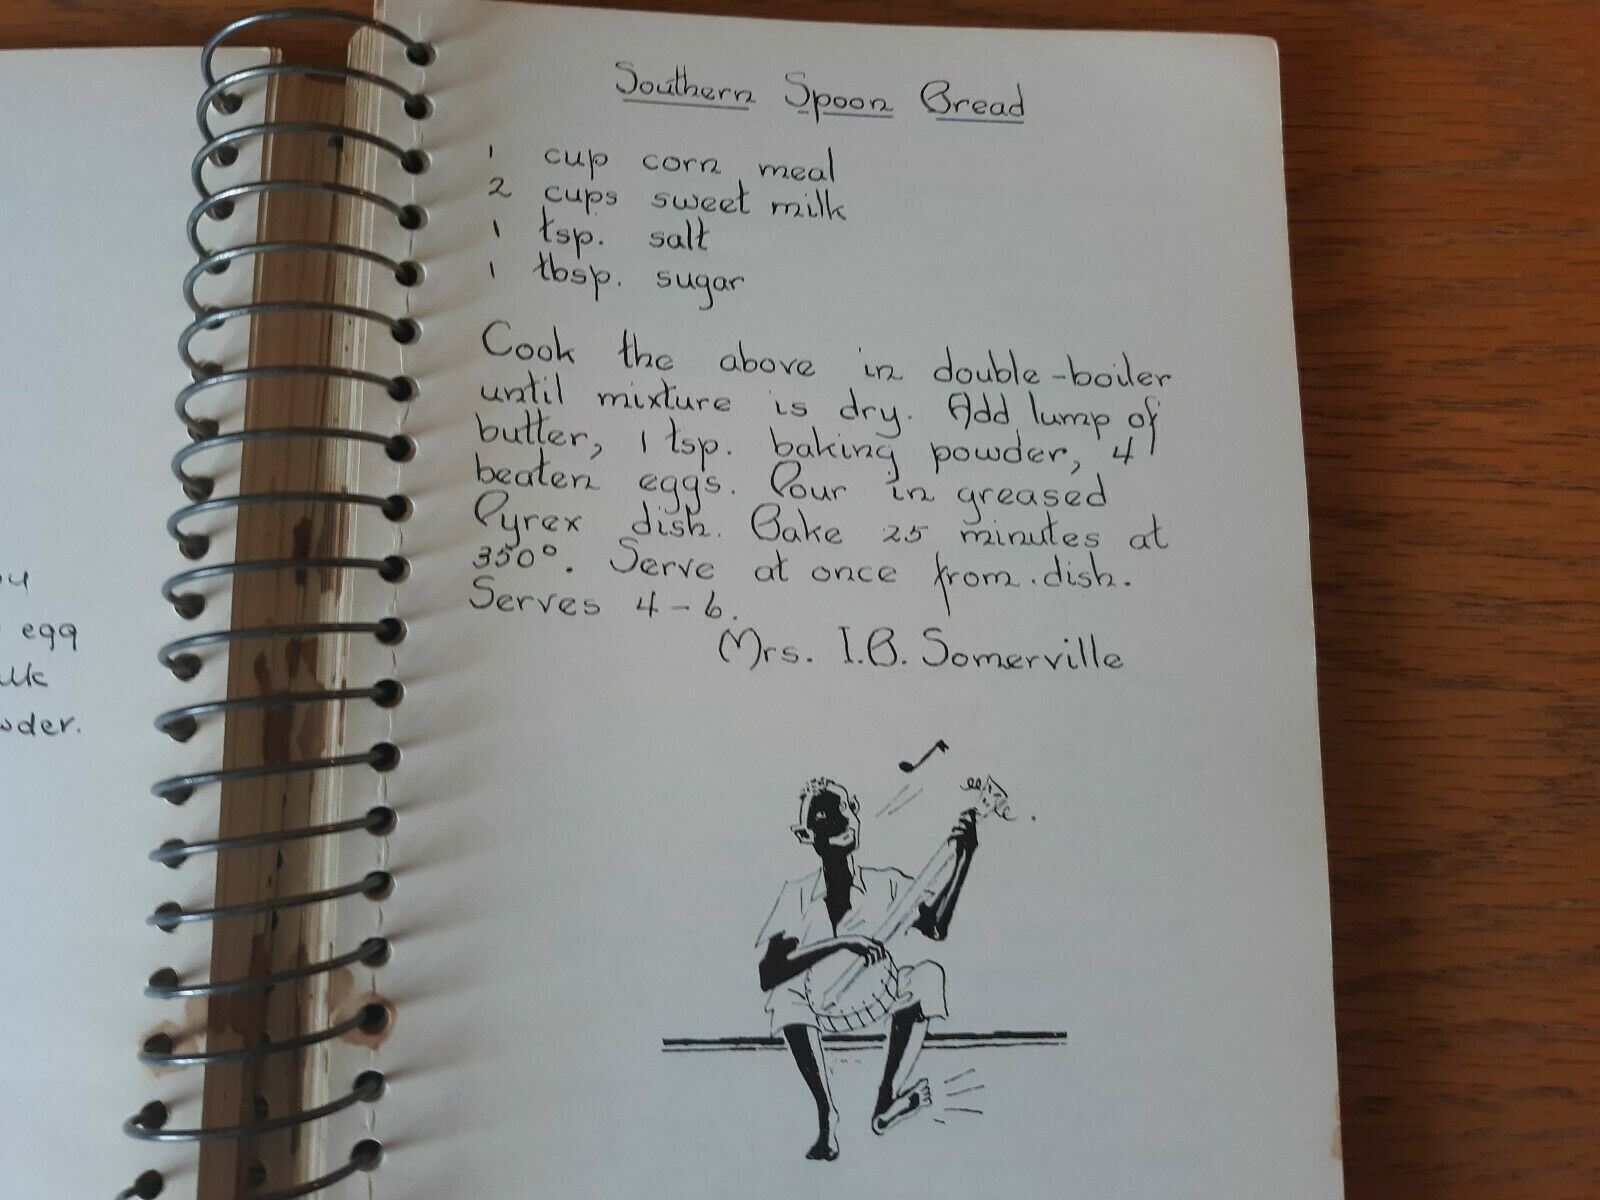 Southern Spoon Bread
1 cup corn meal
2 cups sweet milk
1 tsp. salt
1 tbsp. sugar
Cook the above in double-boiler
until mixture is dry. Add lump of
butter, 1 tsp. baking powder, 4
beaten eggs. Pour in greased
Pyrex dish. Bake 25 minutes at
350°. Serve at once from dish.
Serves 4-6.
Mrs. I.B. Somerville
egg